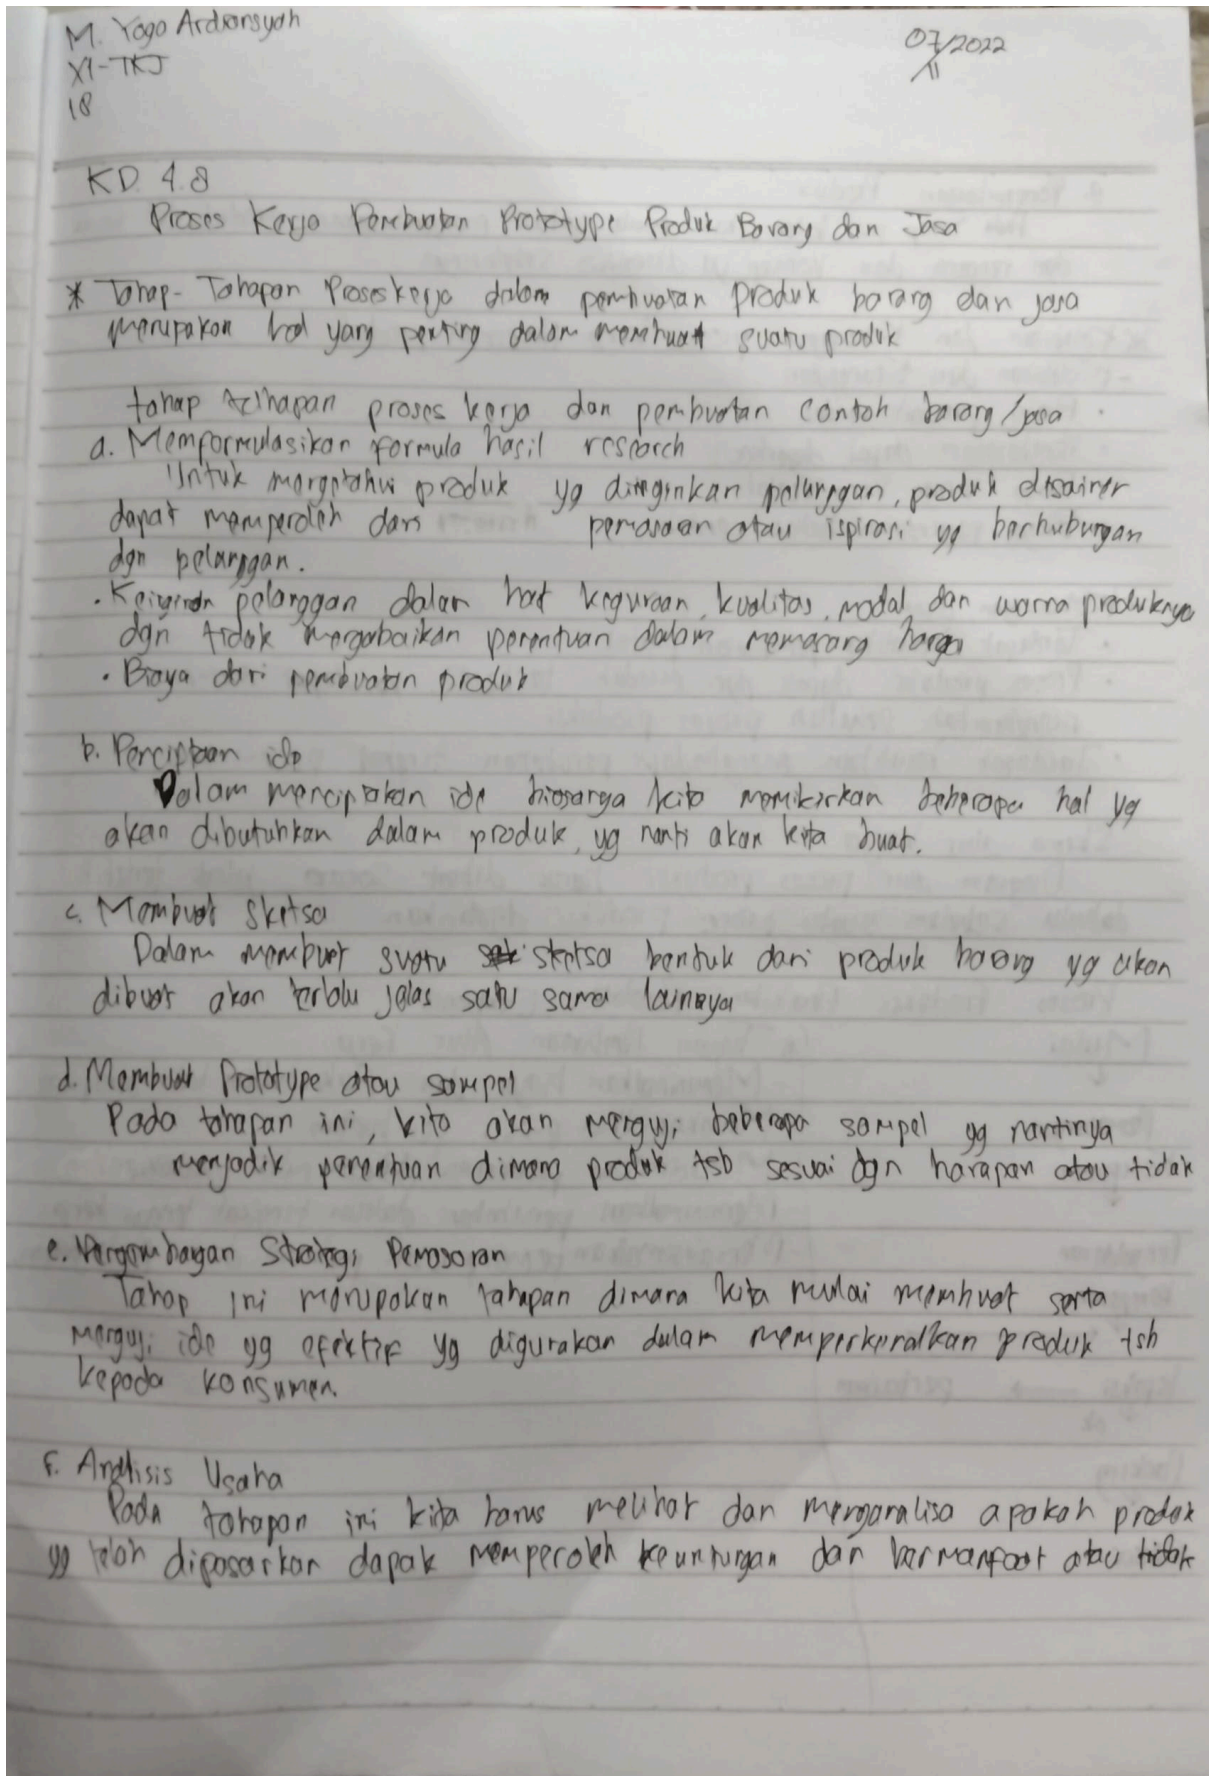 M. Yogo Ardiansyah
07/11/2022
XI-TKJ
18
KD. 4.8
Proses Kerja Pembuatan Prototype Produk Barang dan Jasa
* Tahap-Tahapan Proses kerja dalam pembuatan produk barang dan jasa
merupakan hal yang penting dalam membuat suatu produk
tahap tahapan proses kerja dan pembuatan contoh barang/jasa
a. Memformulasikan formula hasil research
Untuk mengetahui produk yg diinginkan pelanggan, produk disainer
dapat memperoleh dari pemasaran atau ispirasi yg berhubungan
dgn pelanggan.
. Keiginan pelanggan dalam hal kegunaan, kualitas, modal, dan warna produknya
dgn tidak mengabaikan penentuan dalam memasang harga
. Biaya dari pembuatan produk
b. Penciptaan ide
Dalam menciptakan ide biasanya kita memikirkan beberapa hal yg
akan dibutuhkan dalam produk, yg nanti akan kita buat.
c. Membuat Sketsa
Dalam membuat suatu sketsa bentuk dari produk barang yg akan
dibuat akan terlalu jelas satu sama lainnya
d. Membuat Prototype atau sampel
Pada tahapan ini, kita akan menguji beberapa sampel yg nantinya
menjadik penentuan dimana produk tsb sesuai dgn harapan atau tidak
e. Pengembangan Strategi Pemasaran
Tahap ini merupakan tahapan dimana kita mulai membuat serta
menguji ide yg efektif yg digunakan dalam memperkenalkan produk tsb
kepada konsumen.
f. Analisis Usaha
Pada tahapan ini kita harus melihat dan menganalisa apakah produk
yg telah dipasarkan dapak memperoleh keuntungan dan bermanfaat atau tidak